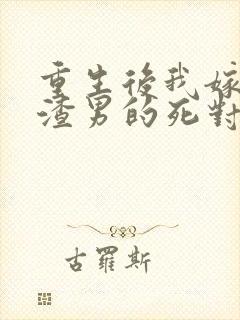 重生後我嫁
渣男的死對
古羅斯